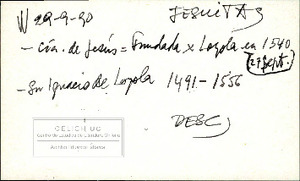 29-9-90 JESUITAS
- Cía. de Jesús = Fundada x Loyola en 1540
(27 Sept.)
- Sn Ignacio de Loyola 1491-1556
DESC
CELICH UC